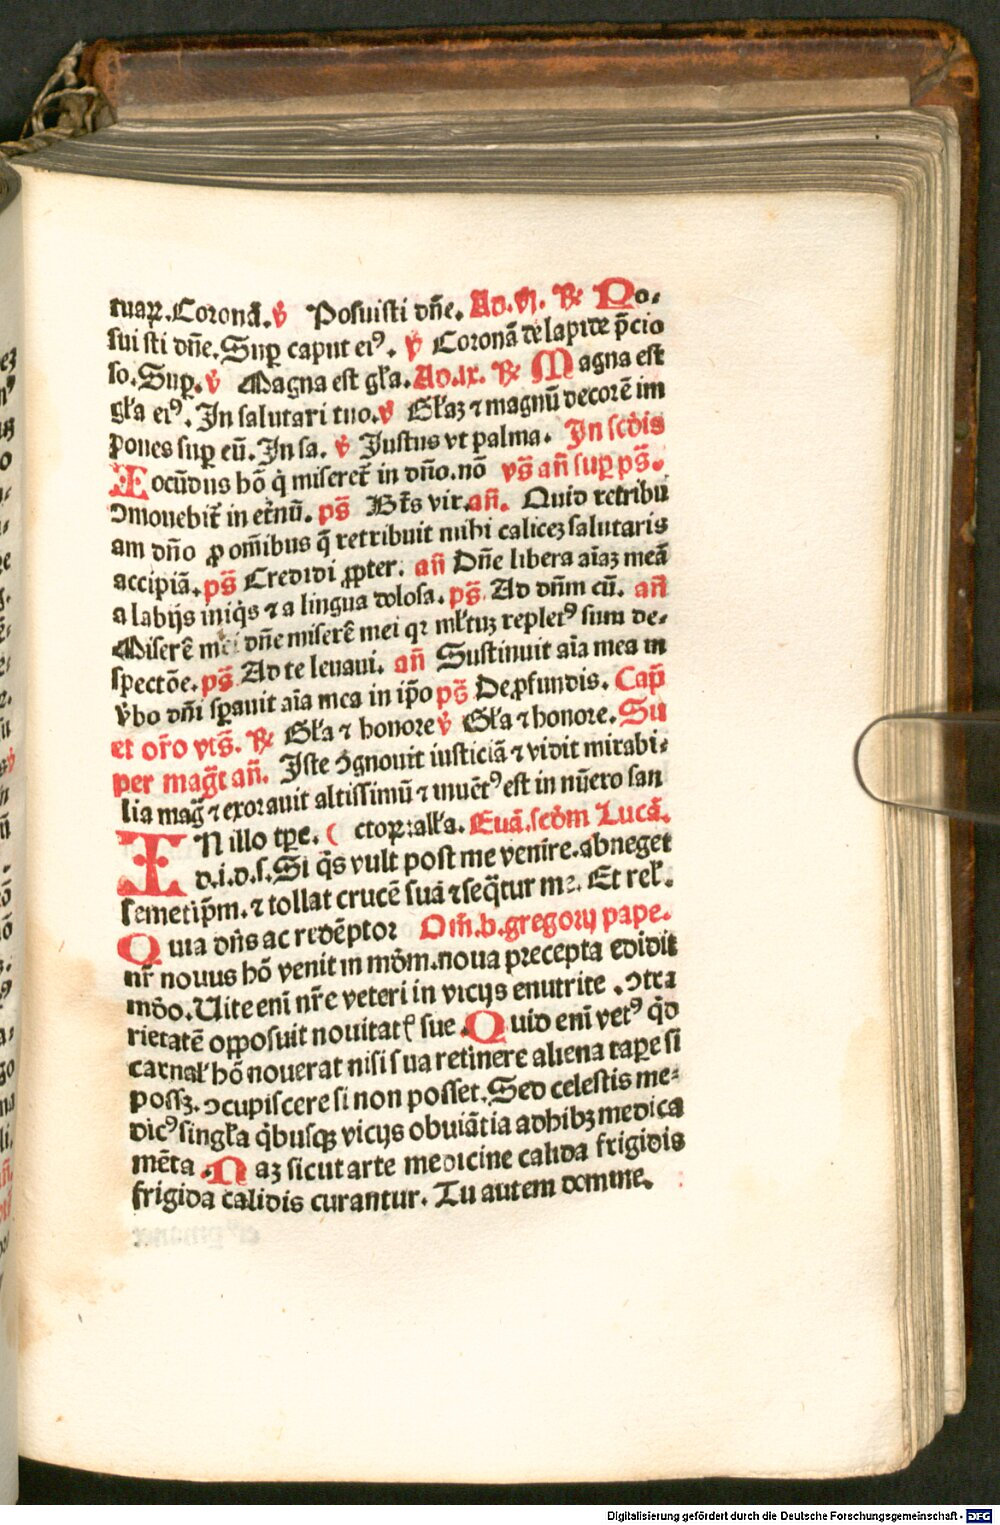 tuaꝝ. Coronā. ℣ Posuisti dn̄e. Ad. vj. ℟ Po-
sui sti dn̄e. Suꝑ caput eiꝰ. ℣ Coronā de lapide p̄cio
so. Suꝑ. ℣ Magna est gl̄a. Ad. ix. ℟ Magna est
gl̄a eiꝰ. In salutari tuo. ℣ Gl̄aꝫ ⁊ magnū decorē im
pones suꝑ eū. In sa. ℣ Justus vt palma. In scd̄is
Iocūdus hō q̇ miseret̄ in dn̄o. nō vs̄ an̄ suꝑ ps̄.
ↄmouebit̄ in et̄nū. ps̄ Bt̄s vir. an̄. Quid retribu
am dn̄o ꝓ om̄ibus q̄ retribuit mihi caliceꝫ salutaris
accipiā. ps̄ Credidi ꝓpter. an̄ Dn̄e libera aīaꝫ meā
a labijs iniq̇s ⁊ a lingua dolosa. ps̄. Ad dn̄m cū. an̄
Miserē mei dn̄e miserē mei qꝛ ml̄tuꝫ repletꝰ sum de-
spectōe. ps̄ Ad te leuaui. an̄ Sustinuit aīa mea in
v̄bo dn̄i sꝑauit aīa mea in ip̄o ps̄ De ꝓfundis. Cap̄
et or̄o vts̄. ℟ Gl̄a ⁊ honore ℣ Gl̄a ⁊ honore. Su
per maḡt an̄. Iste ↄgnouit iusticiā ⁊ vidit mirabi-
lia maḡ ⁊ exorauit altissimū ⁊ inuēt̄ꝰ est in nūero san
IN illo tꝑe. ( ctoꝝ: all̄a. Euā. scd̄m Lucā.
d. i. d. s. Si q̇s vult post me venire. abneget
semetip̄m. ⁊ tollat crucē suā ⁊ seq̄tur me. Et rel̄.
Quia dn̄s ac redēptor Om̄. b. gregorij pape.
nr̄ nouus hō venit in mōm. noua precepta edidit
mōo. Uite enī nr̄e veteri in vicijs enutrite. ↄtra
rietatē opposuit nouitatꝭ sue. Quid enī vetꝰ q̇d
carnal̄ hō nouerat nisi sua retinere aliena raꝑe si
possꝫ. ↄcupiscere si non posset. Sed celestis me-
dicꝰ singl̄a q̇busqꝫ vicijs obuiātia adhibꝫ medica
mēta. Naꝫ sicut arte medicine calida frigidis
frigida calidis curantur. Tu autem domine.
Digitalisierung gefördert durch die Deutsche Forschungsgemeinschaft - DFG